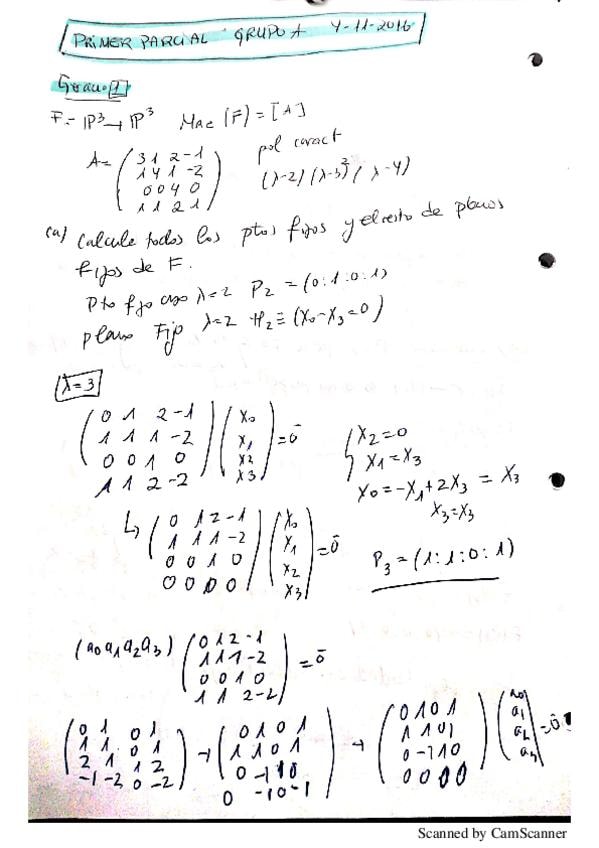 PRIMER PARCIAL GRUPO A 4-11-2016
F= IP³→IP³ Mac (F) = [A]
pol caract
A= ( 3 1 2 -1
1 4 1 -2
0 0 4 0
1 1 2 1 )
(λ-2)(λ-3)²(λ-4)
(a) Calcule todos los ptos fijos y el resto de planos
fijos de F.
Pto fijo caso λ=2 P₂ = (0:1:0:1)
plano Fijo λ=2 H₂ ≡ (X₀-X₃=0)
λ=3
( 0 1 2 -1
1 1 1 -2
0 0 1 0
1 1 2 -2 ) ( X₀
X₁
X₂
X₃ ) = 0̄
{ X₂=0
X₁=X₃
X₀=-X₁+2X₃ = X₃
X₃=X₃
↳ ( 0 1 2 -1
1 1 1 -2
0 0 1 0
0 0 0 0 ) ( X₀
X₁
X₂
X₃ ) = 0̄
P₃ = (1:1:0:1)
(a₀ a₁ a₂ a₃) ( 0 1 2 -1
1 1 1 -2
0 0 1 0
1 1 2 -2 ) = 0̄
( 0 1 0 1
1 1 0 1
2 1 1 2
-1 -2 0 -2 ) → ( 0 1 0 1
1 1 0 1
0 -1 1 0
0 -1 0 -1 ) → ( 0 1 0 1
1 1 0 1
0 -1 1 0
0 0 0 0 ) ( a₀
a₁
a₂
a₃ ) = 0̄
Scanned by CamScanner